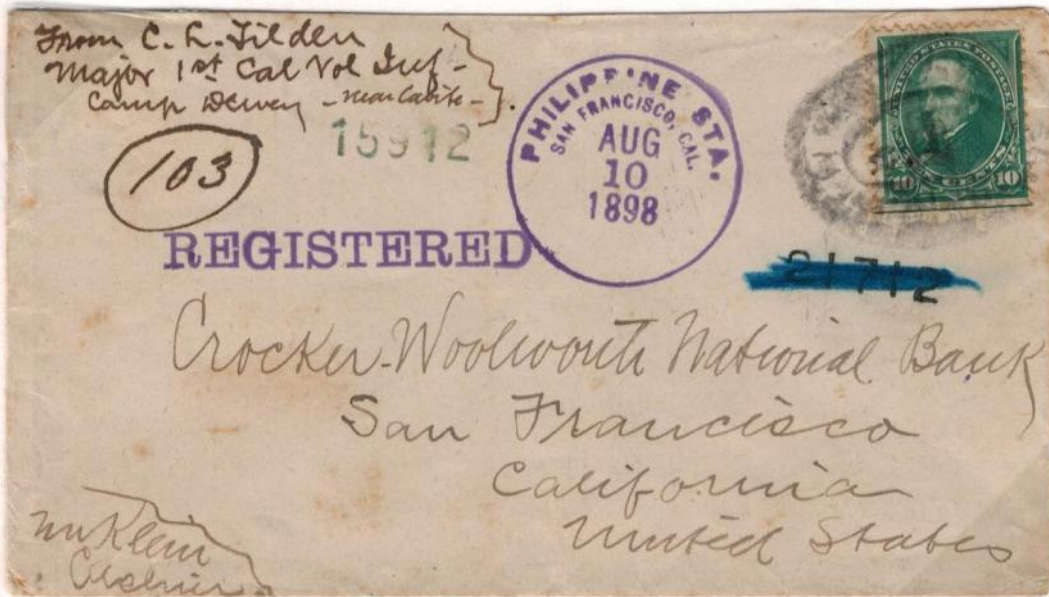 From C. L. Tilden
Major 1st Cal Vol Inf-
Camp Dewey - near Cavite - .
15912
103
PHILIPPINE STA.
SAN FRANCISCO, CAL.
AUG
10
1898
UNITED STATES POSTAGE
10 TEN CENTS 10
REGISTERED
21712
Crocker-Woolworth National Bank
San Francisco
California
United States
Wm Klein
Cashier